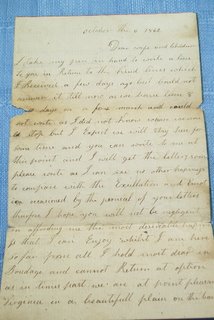 October the 6 1862
Dear wife and children
I take my pen in hand to write a line
to you in Return to the kind lines which
I Received a few days ago but could not
answer it till now as we have been
days on a march and could
not write as I did not know where we
stop but I Expect we will stay here for
some time and you can write to me at
this point and I will get the letter soon
please write as I am in no other
to compare with the Exultation and
occasioned by the perusal of your letters
therefore I hope you will not be negligent
in affording me this most desirable
that I can Enjoy whilst I am here
so far from all I hold most dear in
Bondage and cannot Return at option
as in times past we are at point pleasant
Virginia in a beautifull plain on the